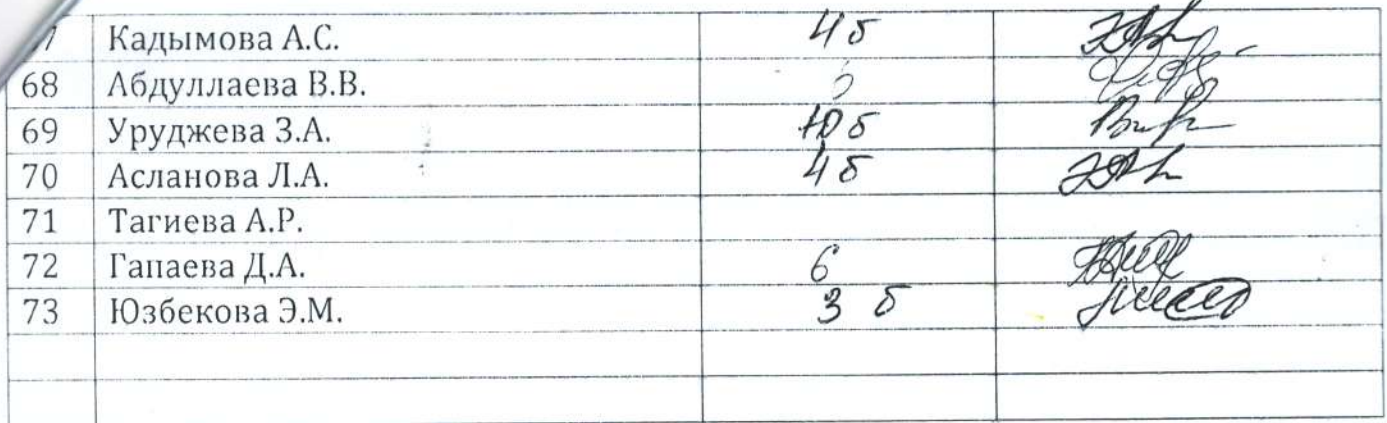 7 Кадымова А.С. 4 б
68 Абдуллаева В.В.
69 Уруджева З.А. 10 б
70 Асланова Л.А. 4 б
71 Тагиева А.Р.
72 Гапаева Д.А. 6
73 Юзбекова Э.М. 3 б